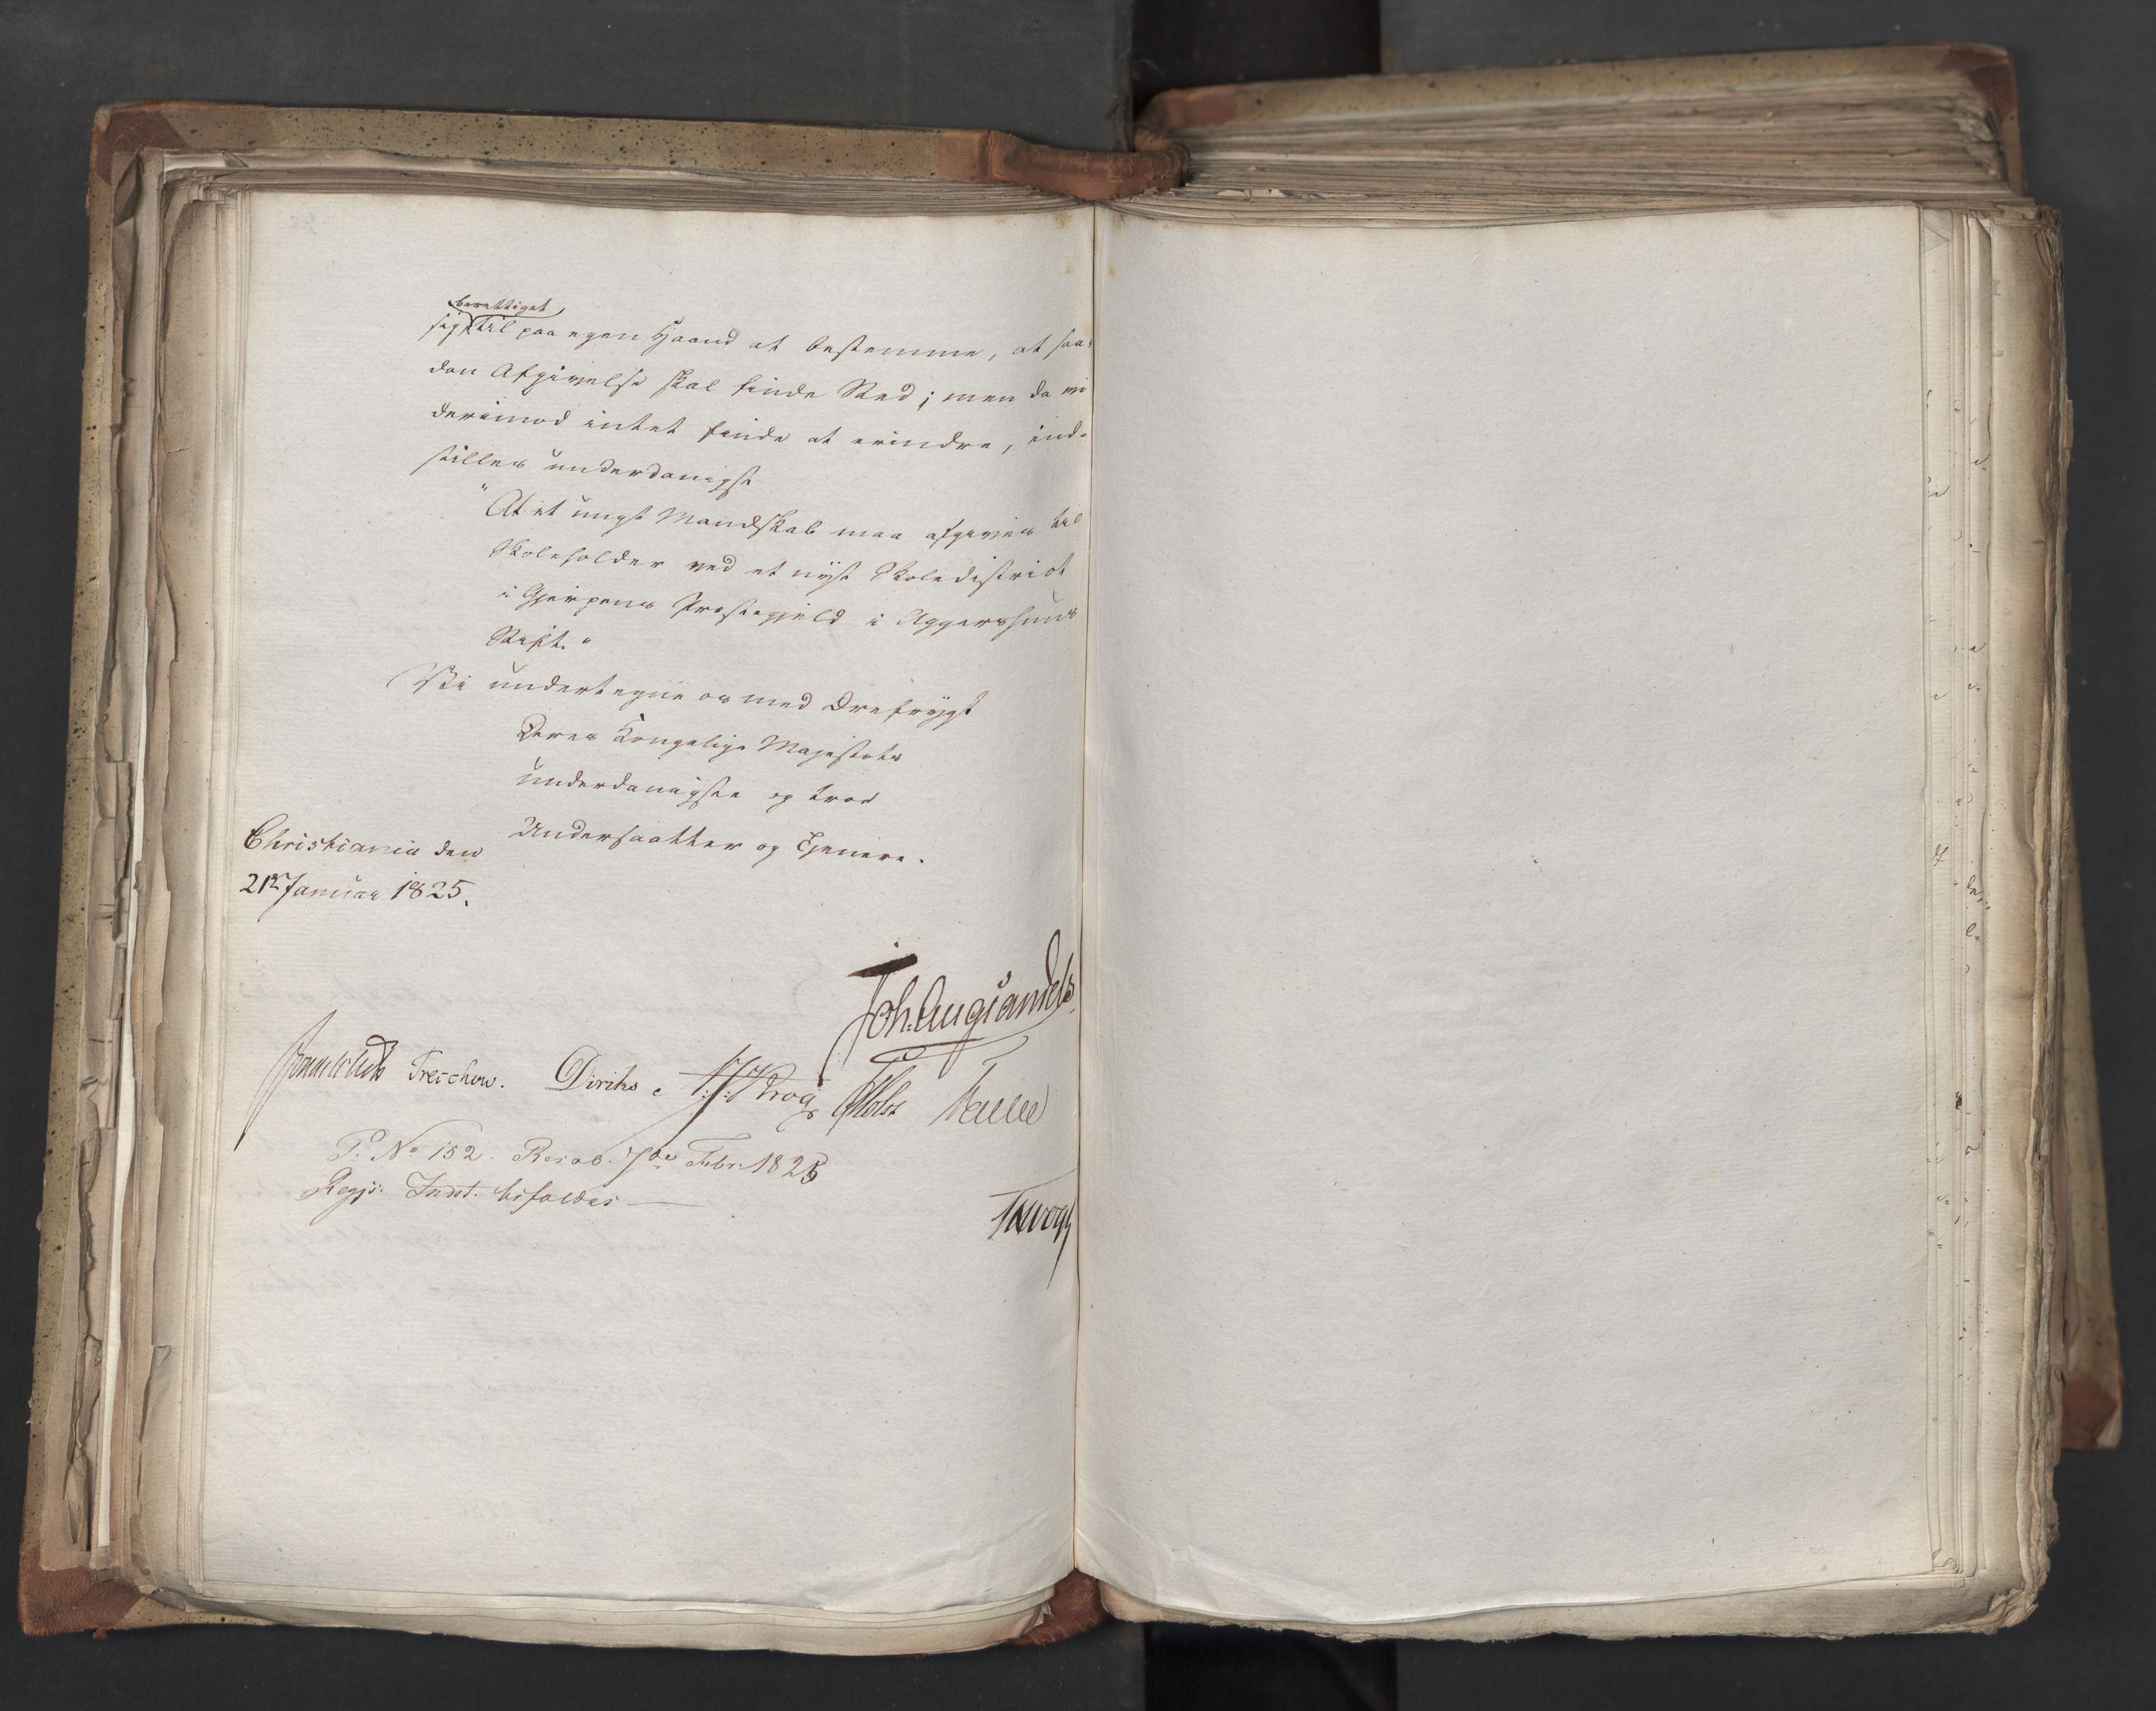 berettiget
sig til paa egen Haand at bestemme, at saa-
dan Afgivelse skal finde Sted; men da vi
derimod intet finde at erindre, ind-
stilles underdanigst
"At et ungt Mandskab maa afgives til
Skoleholder ved et nyt Skoledistrict
i Gjerpens Præstegjeld i Aggershuus
Stift."
Vi undertegne os med Ærefrygt
Deres Kongelige Majestæts
underdanigste og troe
Undersaatter og Tjenere.
Christiania den
21de Januar 1825.
Joh. Aug. Sandels
Treschow. Diriks. Krog Holst
P. No 152. Resol. 7de Febr. 1825
Regjs. Indst. bifaldes